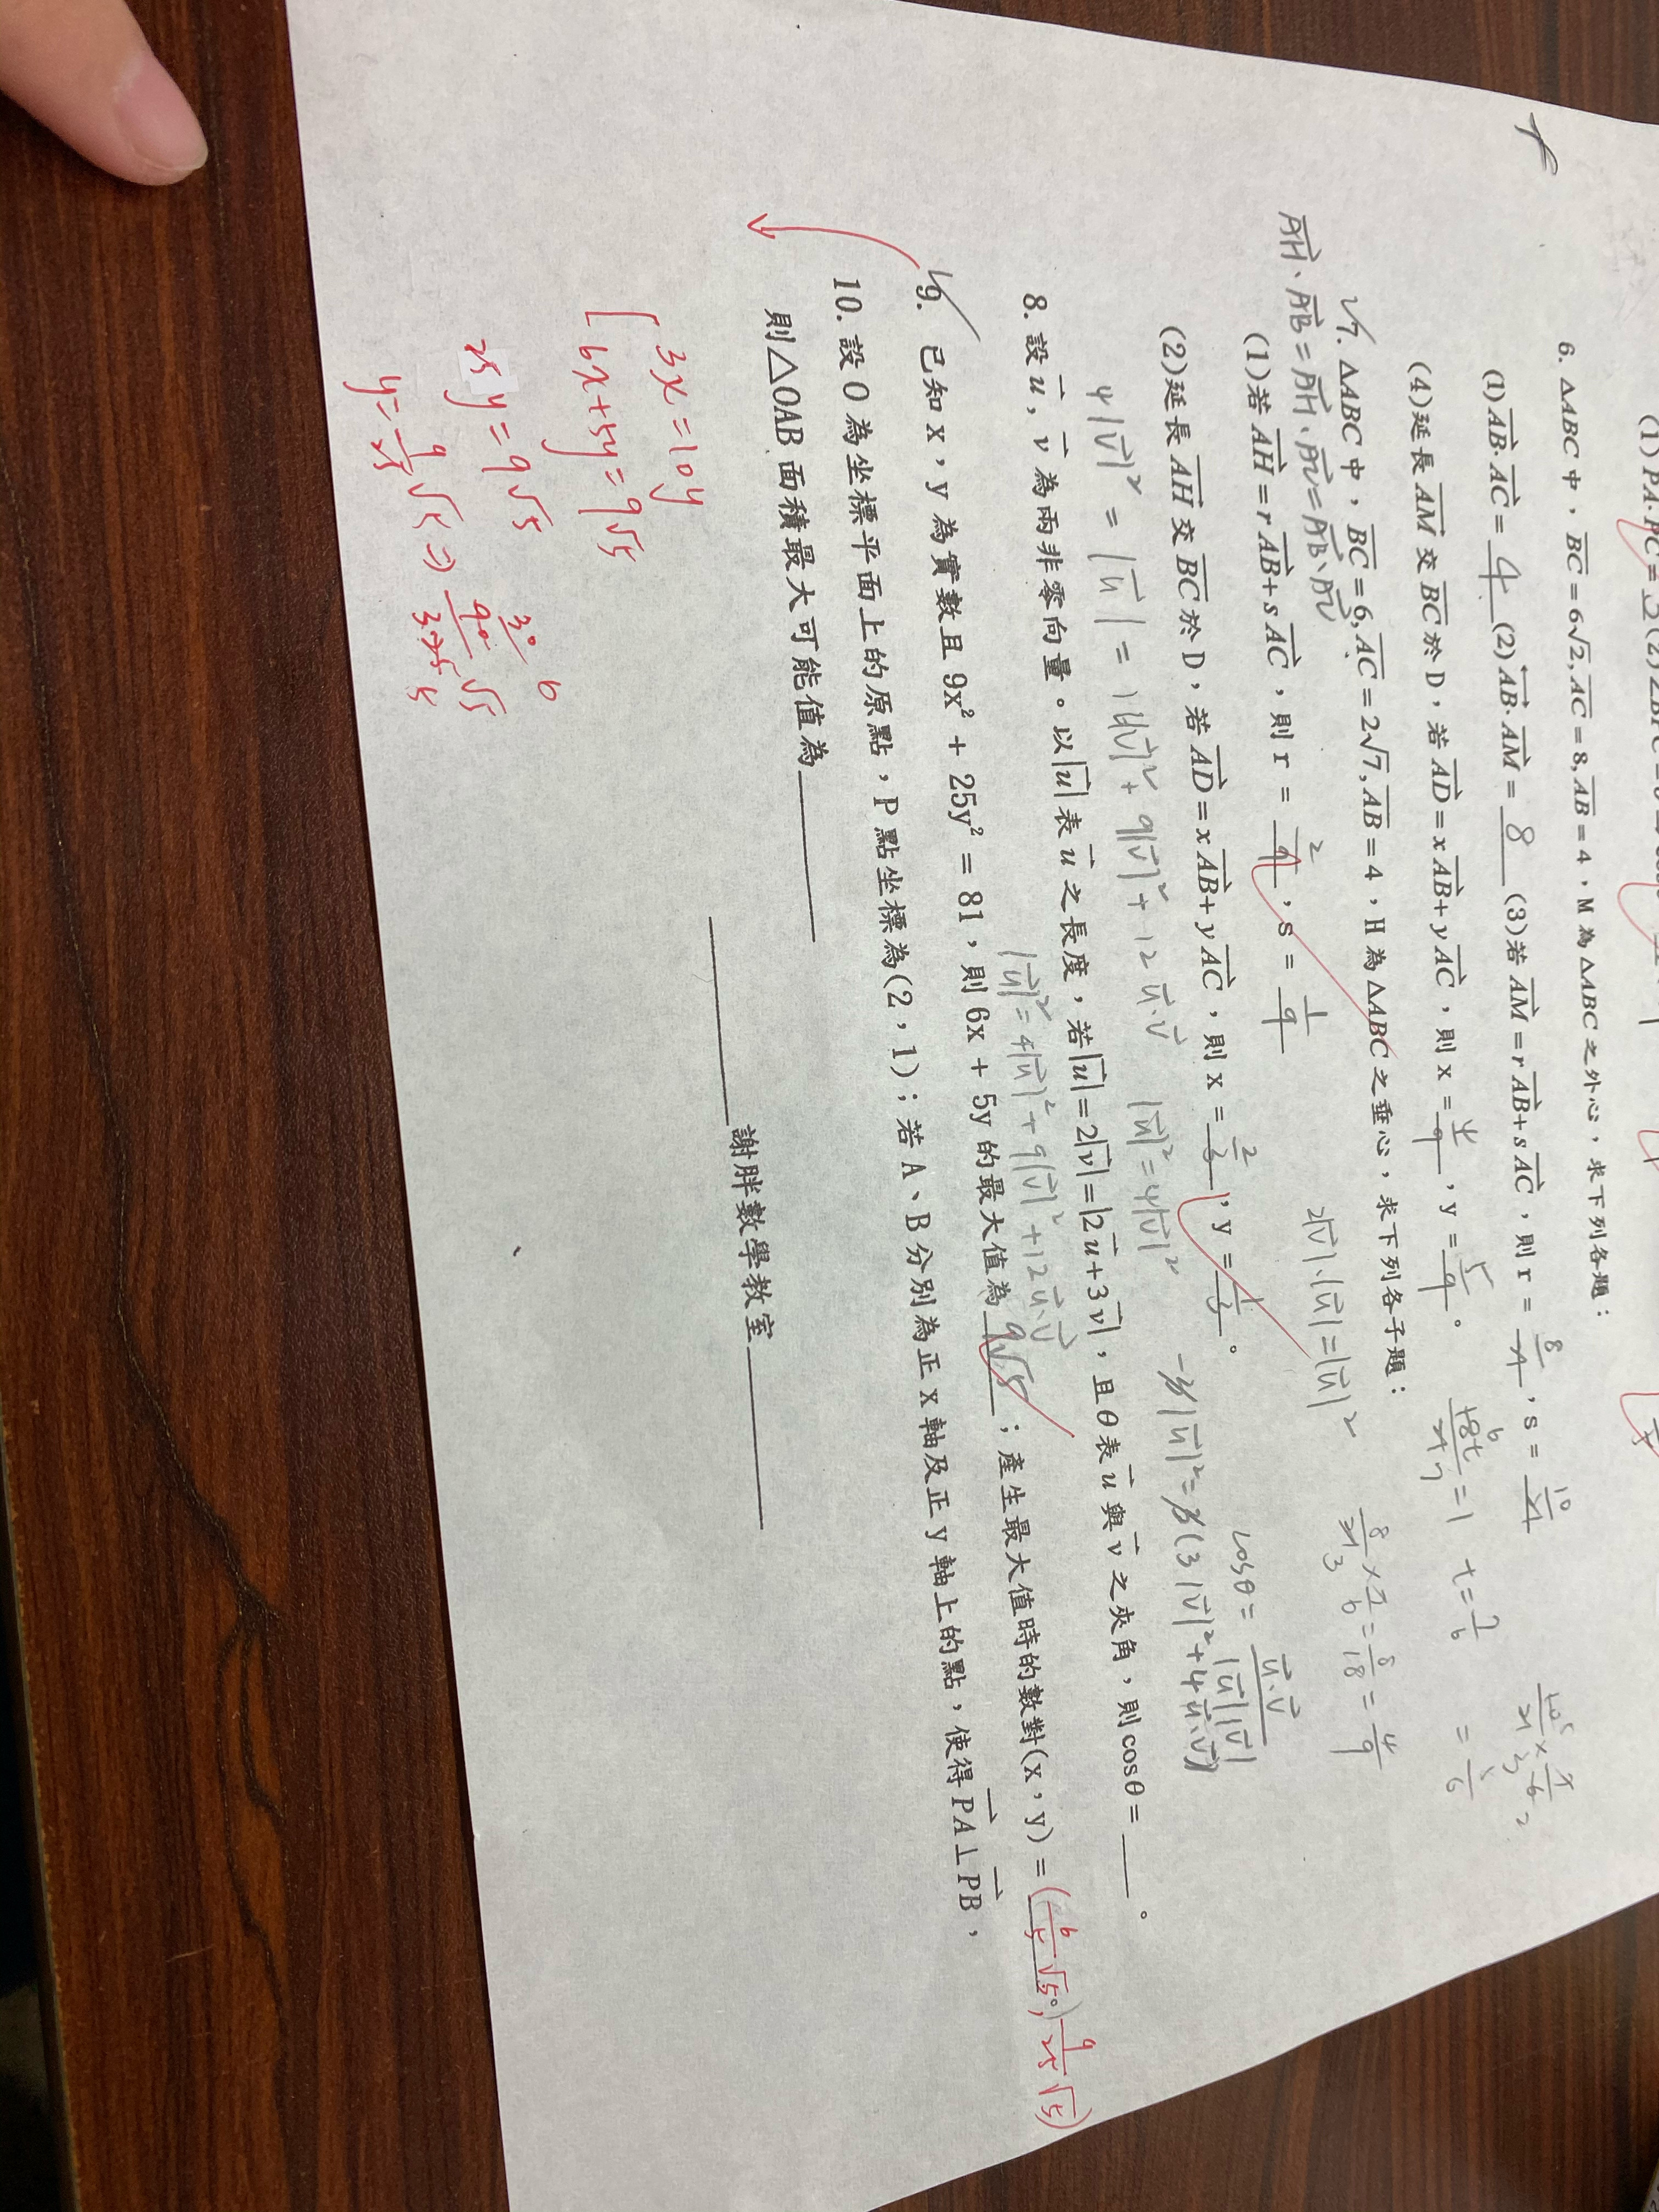 6. △ABC 中，BC=6√2, AC=8, AB=4，M 為△ABC 之外心，求下列各題：
(1) AB·AC = 4 (2) AB·AM = 8 (3)若 AM = r AB + s AC，則 r = 8/21，s = 10/21
(4)延長 AM 交 BC 於 D，若 AD = x AB + y AC，則 x = 4/9，y = 5/9。
7. △ABC 中，BC=6, AC=2√7, AB=4，H 為△ABC 之垂心，求下列各子題：
AH·AB = AH·AC = AB·AC
(1)若 AH = r AB + s AC，則 r = 2/9，s = 1/9
2|v|·|u| = |u|²
(2)延長 AH 交 BC 於 D，若 AD = x AB + y AC，則 x = 2/3，y = 1/3。
cosθ = u·v / |u||v|
4|v|² = |u| = 14|v|² + 9|v|² + 12 u·v
|u|² = 4|v|²
8. 設 u，v 為兩非零向量。以|u|表 u 之長度，若|u|=2|v|=|2u+3v|，且θ表 u 與 v 之夾角，則 cosθ = ____。
|u|² = 4|u|² + 9|v|² + 12u·v
9. 已知 x，y 為實數且 9x² + 25y² = 81，則 6x + 5y 的最大值為 9√5；產生最大值時的數對(x，y) = (6/5√5, 9/25√5)
10. 設 O 為坐標平面上的原點，P 點坐標為(2，1)；若 A、B 分別為正 x 軸及正 y 軸上的點，使得 PA⊥PB，
則△OAB 面積最大可能值為________
謝胖數學教室
3x = 10y
6x + 5y = 9√5
25y = 9√5
y = 9/25 √5